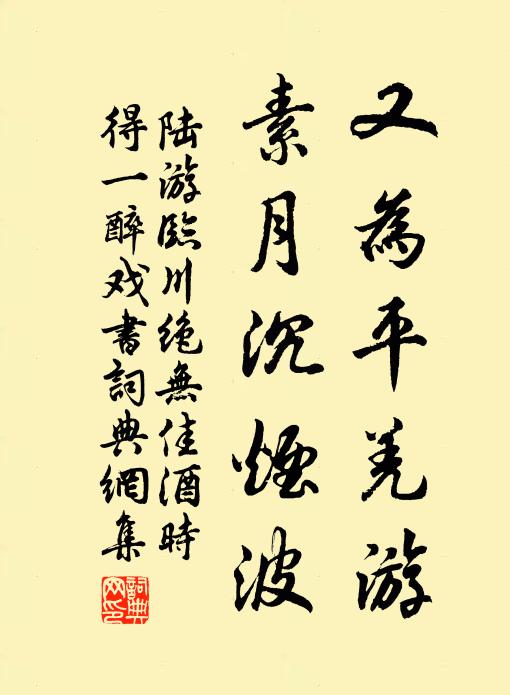 又為平羌游
素月沉煙波
陆游臨川绝無佳酒時
得一醉戏書詞典網集
詞典
网印